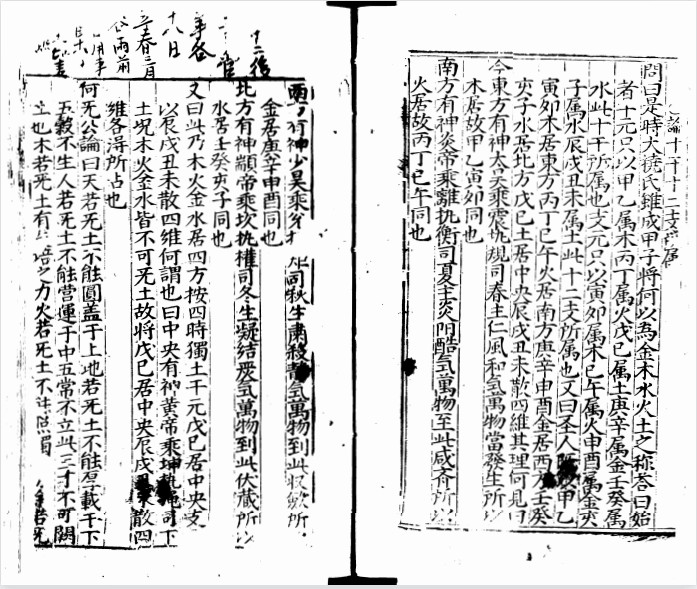 論十干十二支所属
問曰是時大撓氏雖成甲子將何以為金木水火土之称荅曰始
者十元只以甲乙属木丙丁属火戊巳属土庚辛属金壬癸属
水此十干所属也支元只以寅夘属木巳午属火申酉属金亥
子属水辰戌丑未属土此十二支所属也又曰圣人甲乙
寅夘木居東方丙丁巳午火居南方庚辛申酉金居西方壬癸
亥子水居北方戊巳土居中央辰戌丑未散四維其理何見曰
今東方有神太昊乘震执規司春主仁風和氣萬物當發生所以
木居故甲乙寅夘同也
南方有神炎帝乘離执衡司夏主炎陽酷氣萬物至此咸齐所以
火居故丙丁巳午同也
有神少昊乘司秋生肅殺静氣萬物到此収歛所
金居庚辛申酉同也
北方有神顓帝乘坎执權司冬生凝結嚴氣萬物到此伏蔵所以
水居壬癸亥子同也
又曰此乃木火金水居四方按四時獨土干元戊巳居中央支
以辰戌丑未散四維何謂也曰中央有神黄帝乘坤执䋲司下
土况木火金水皆不可无土故將戊巳居中央辰戌丑未散四
維各得所占也
何无公論曰天若无土不能圓盖于上地若无土不能厚載于下
五穀不生人若无土不能营運于中五常不立此三才不可闕
土也木若无土有培之力火若无土不照若无
十二後
官
事各
十八日
立春三月
雨前
用事